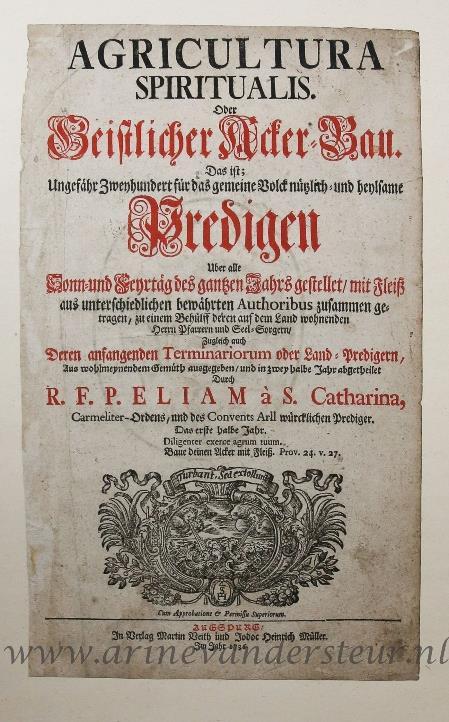 AGRICULTURA
SPIRITUALIS.
Oder
Geistlicher Acker-Bau.
Das ist;
Ungefähr Zweyhundert für das gemeine Volck nützlich- und heylsame
Predigen
Uber alle
Sonn- und Feyrtäg des gantzen Jahrs gestellet / mit Fleiß
aus unterschiedlichen bewährten Authoribus zusammen ge-
tragen, zu einem Behülff deren auf dem Land wohnenden
Herrn Pfarrern und Seel-Sorgern /
Zugleich auch
Deren anfangenden Terminariorum oder Land-Predigern,
Aus wohlmeynendem Gemüth ausgegeben / und in zwey halbe Jahr abgetheilet
Durch
R. F. P. ELIAM à S. Catharina,
Carmeliter-Ordens, und des Convents Arll würcklichen Prediger.
Das erste halbe Jahr.
Diligenter exerce agrum tuum.
Baue deinen Acker mit Fleiß. Prov. 24. v. 27.
Turbant, Sed extollunt
Cum Approbatione & Permissu Superiorum.
AUGSPURG /
In Verlag Martin Veith und Jodoc Heinrich Müller.
Im Jahr
www.arinevandersteur.nl